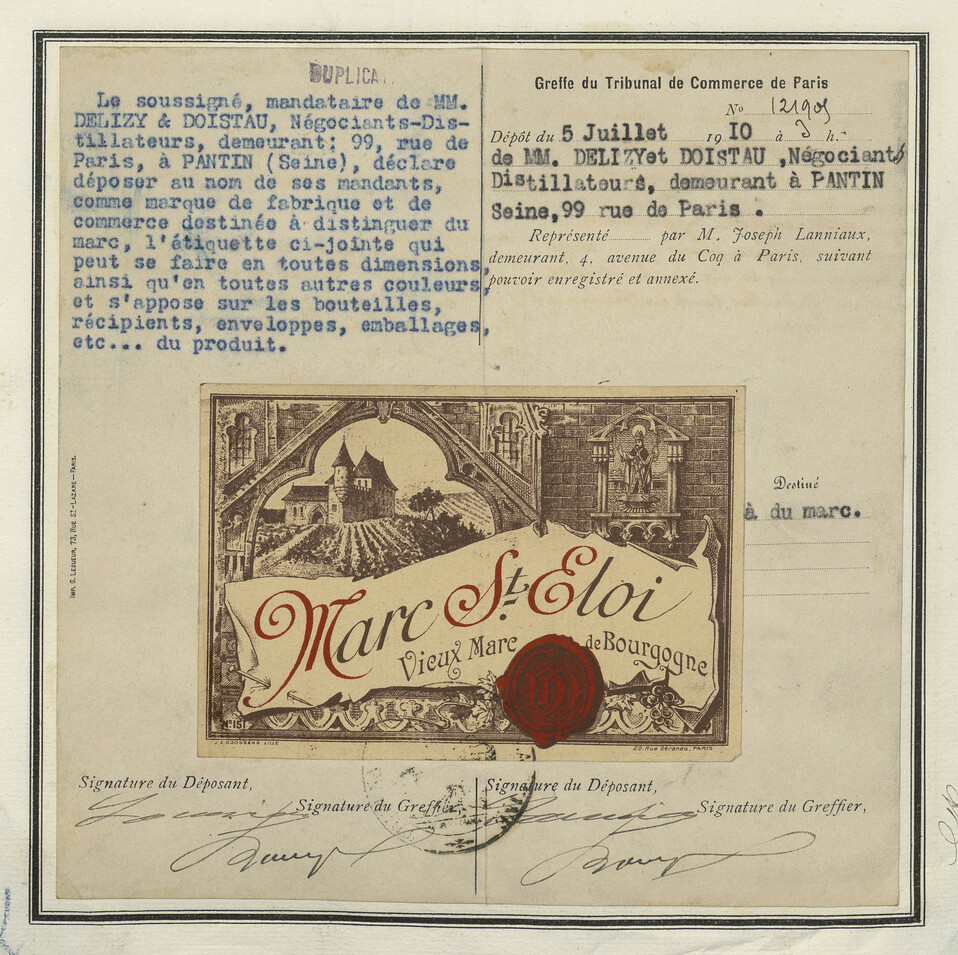 DUPLICA
Le soussigné, mandataire de MM.
DELIZY & DOISTAU, Négociants-Dis-
tillateurs, demeurant: 99, rue de
Paris, à PANTIN (Seine), déclare
déposer au nom de ses mandants,
comme marque de fabrique et de
commerce destinée à distinguer du
marc, l'étiquette ci-jointe qui
peut se faire en toutes dimensions,
ainsi qu'en toutes autres couleurs,
et s'appose sur les bouteilles,
récipients, enveloppes, emballages,
etc... du produit.
Greffe du Tribunal de Commerce de Paris
No 121905
Dépôt du 5 Juillet 1910 à 3 h.
de MM. DELIZYet DOISTAU ,Négociants
Distillateurs, demeurant à PANTIN
Seine,99 rue de Paris .
Représenté par M. Joseph Lanniaux,
demeurant, 4, avenue du Coq à Paris, suivant
pouvoir enregistré et annexé.
Imp. G. Lesueur, 73, Rue St-Lazare — Paris.
Destiné
à du marc.
Marc St. Eloi
Vieux Marc de Bourgogne
No 151
J.E. GOOSSENS, LILLE
20, Rue Sérando, PARIS
Signature du Déposant,
Signature du Greffier,
Signature du Déposant,
Signature du Greffier,